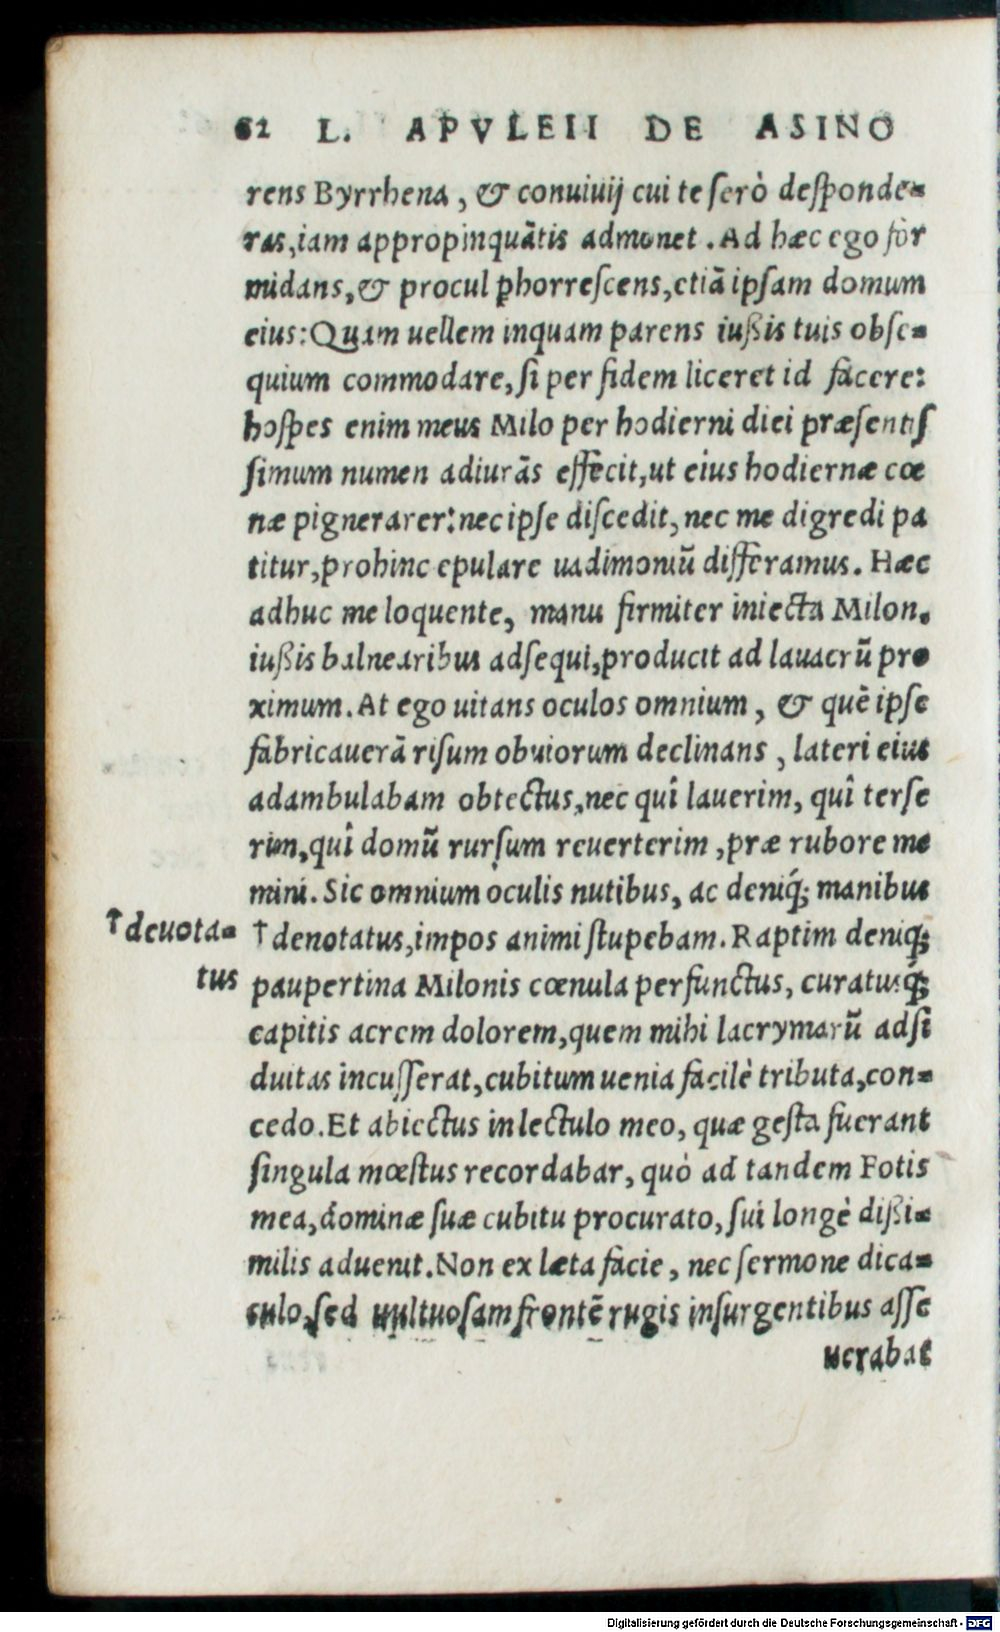 62 L. APVLEII DE ASINO
rens Byrrhena, & conuiuij cui te serò desponde-
ras, iam appropinquãtis admonet. Ad hæc ego for
midans, & procul ꝑhorrescens, etiã ipsam domum
eius: Quam uellem inquam parens iußis tuis obse-
quium commodare, si per fidem liceret id facere:
hospes enim meus Milo per hodierni diei præsentis
simum numen adiurãs effecit, ut eius hodiernæ cœ
næ pignerarer: nec ipse discedit, nec me digredi pa
titur, prohinc epulare uadimoniũ differamus. Hæc
adhuc me loquente, manu firmiter iniecta Milon.
iußis balnearibus adsequi, producit ad lauacrũ pro
ximum. At ego uitans oculos omnium, & quẽ ipse
fabricauerã risum obuiorum declinans, lateri eius
adambulabam obtectus, nec quî lauerim, quî terse
rim, quî domũ rursum reuerterim, præ rubore me
mini. Sic omnium oculis nutibus, ac deniq́; manibus
†deuota- †denotatus, impos animi stupebam. Raptim deniq;
tus paupertina Milonis cœnula perfunctus, curatusq́;
capitis acrem dolorem, quem mihi lacrymarũ adsi
duitas incusserat, cubitum uenia facilè tributa, con-
cedo. Et abiectus in lectulo meo, quæ gesta fuerant
singula mœstus recordabar, quò ad tandem Fotis
mea, dominæ suæ cubitu procurato, sui longè dißi-
milis aduenit. Non ex læta facie, nec sermone dica-
culo, sed uultuosam frontẽ rugis insurgentibus asse
uerabat
Digitalisierung gefördert durch die Deutsche Forschungsgemeinschaft - DFG